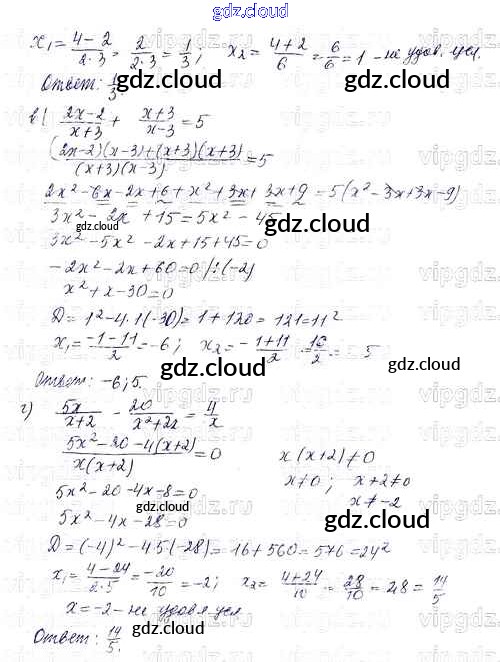 gdz.cloud
x₁ = (4-2)/(2·3) = 2/(2·3) = 1/3; x₂ = (4+2)/6 = 6/6 = 1 - не удов. усл.
Ответ: 1/3.
в) (2x-2)/(x+3) + (x+3)/(x-3) = 5
((2x-2)(x-3)+(x+3)(x+3))/((x+3)(x-3)) = 5
2x²-6x-2x+6+x²+3x+3x+9 = 5(x²-3x+3x-9)
3x² - 2x + 15 = 5x² - 45
3x² - 5x² - 2x + 15 + 45 = 0
-2x² - 2x + 60 = 0 /:(-2)
x² + x - 30 = 0
D = 1² - 4·1(-30) = 1 + 120 = 121 = 11²
x₁ = (-1-11)/2 = -6; x₂ = (-1+11)/2 = 10/2 = 5
Ответ: -6; 5.
г) 5x/(x+2) - 20/(x²+2x) = 4/x
(5x²-20-4(x+2))/(x(x+2)) = 0 x(x+2)≠0
x≠0; x+2≠0
5x²-20-4x-8=0 x≠-2
5x²-4x-28=0
D = (-4)² - 4·5(-28) = 16 + 560 = 576 = 24²
x₁ = (4-24)/(2·5) = -20/10 = -2; x₂ = (4+24)/10 = 28/10 = 2,8 = 14/5
x = -2 - не удовл. усл
Ответ: 14/5.
gdz.cloud